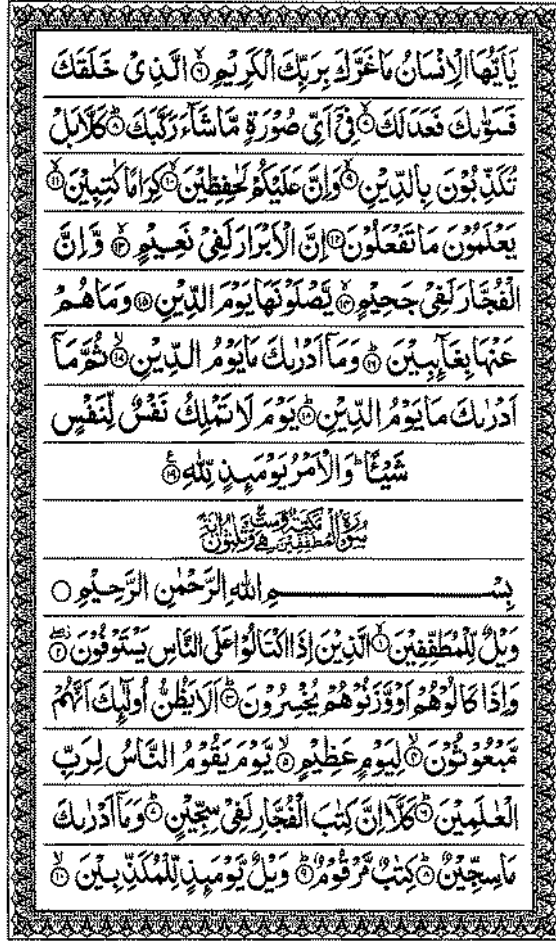 يٰۤاَيُّهَا الْاِنْسَانُ مَا غَرَّكَ بِرَبِّكَ الْكَرِيْمِ ۙ﴿٦﴾ الَّذِىْ خَلَقَكَ
فَسَوّٰىكَ فَعَدَلَكَ ۙ﴿٧﴾ فِىْۤ اَىِّ صُوْرَةٍ مَّا شَآءَ رَكَّبَكَ ؕ﴿٨﴾ كَلَّا بَلْ
تُكَذِّبُوْنَ بِالدِّيْنِ ۙ﴿٩﴾ وَاِنَّ عَلَيْكُمْ لَحٰفِظِيْنَ ۙ﴿١٠﴾ كِرَامًا كٰتِبِيْنَ ۙ﴿١١﴾
يَعْلَمُوْنَ مَا تَفْعَلُوْنَ ﴿١٢﴾ اِنَّ الْاَبْرَارَ لَفِىْ نَعِيْمٍ ۚ﴿١٣﴾ وَّاِنَّ
الْفُجَّارَ لَفِىْ جَحِيْمٍ ۚۖ﴿١٤﴾ يَّصْلَوْنَهَا يَوْمَ الدِّيْنِ ﴿١٥﴾ وَمَا هُمْ
عَنْهَا بِغَآئِبِيْنَ ؕ﴿١٦﴾ وَمَاۤ اَدْرٰىكَ مَا يَوْمُ الدِّيْنِ ۙ﴿١٧﴾ ثُمَّ مَاۤ
اَدْرٰىكَ مَا يَوْمُ الدِّيْنِ ؕ﴿١٨﴾ يَوْمَ لَا تَمْلِكُ نَفْسٌ لِّنَفْسٍ
شَيْـًٔا ؕ وَالْاَمْرُ يَوْمَئِذٍ لِّلّٰهِ ﴿١٩﴾
سُوْرَةُ الْمُطَفِّفِيْنَ مَكِّيَّةٌ وَّهِىَ سِتٌّ وَّثَلٰثُوْنَ اٰيَةً
بِسْمِ اللّٰهِ الرَّحْمٰنِ الرَّحِيْمِ ۝
وَيْلٌ لِّلْمُطَفِّفِيْنَ ۙ﴿١﴾ الَّذِيْنَ اِذَا اكْتَالُوْا عَلَى النَّاسِ يَسْتَوْفُوْنَ ۖ﴿٢﴾
وَاِذَا كَالُوْهُمْ اَوْ وَّزَنُوْهُمْ يُخْسِرُوْنَ ؕ﴿٣﴾ اَلَا يَظُنُّ اُولٰٓئِكَ اَنَّهُمْ
مَّبْعُوْثُوْنَ ۙ﴿٤﴾ لِيَوْمٍ عَظِيْمٍ ۙ﴿٥﴾ يَّوْمَ يَقُوْمُ النَّاسُ لِرَبِّ
الْعٰلَمِيْنَ ؕ﴿٦﴾ كَلَّاۤ اِنَّ كِتٰبَ الْفُجَّارِ لَفِىْ سِجِّيْنٍ ؕ﴿٧﴾ وَمَاۤ اَدْرٰىكَ
مَا سِجِّيْنٌ ؕ﴿٨﴾ كِتٰبٌ مَّرْقُوْمٌ ؕ﴿٩﴾ وَيْلٌ يَّوْمَئِذٍ لِّلْمُكَذِّبِيْنَ ۙ﴿١٠﴾